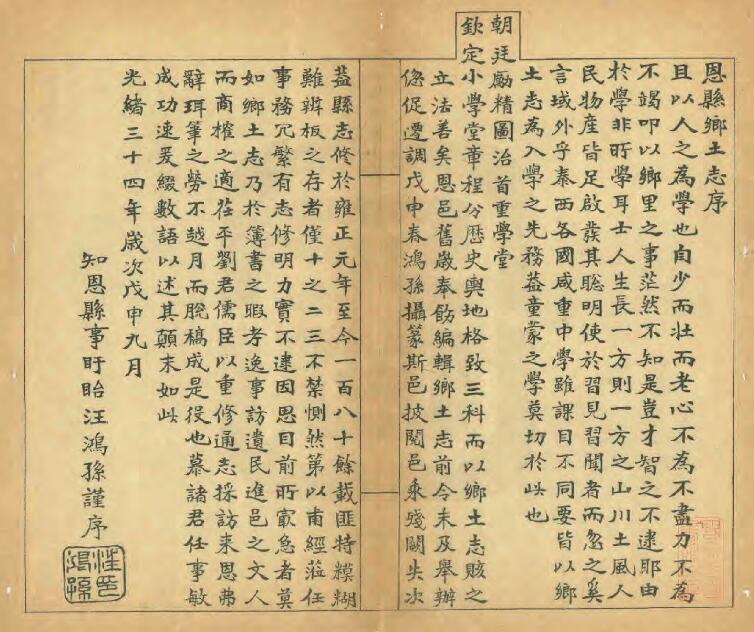 恩縣鄉土志序
且以人之為學也自少而壯而老心不為不盡力不為
不竭叩以鄉里之事茫然不知是豈才智之不逮耶由
於學非所學耳士人生長一方則一方之山川土風人
民物產皆足啟發其聰明使於習見習聞者而忽之奚
言域外乎泰西各國咸重中學雖課目不同要皆以鄉
土志為入學之先務葢童蒙之學莫切於此也
朝廷勵精圖治首重學堂
欽定小學堂章程分歷史輿地格致三科而以鄉土志賅之
立法善矣恩邑舊歲奉飭編輯鄉土志前令未及舉辦
倥促遷調戊申春鴻孫攝篆斯邑披閱邑乘殘闕失次
葢縣志修於雍正元年至今一百八十餘載匪特糢糊
難辨板之存者僅十之二三不禁惻然第以甫經蒞任
事務冗繁有志修明力實不逮因思目前所最急者莫
如鄉土志乃於簿書之暇考逸事訪遺民進邑之文人
而商榷之適茌平劉君儒臣以重修通志採訪來恩弗
辭珥筆之勞不越月而脫稿成是役也慕諸君任事敏
成功速爰綴數語以述其顛末如此
光緒三十四年歲次戊申九月
知恩縣事盱眙汪鴻孫謹序
汪鴻孫印